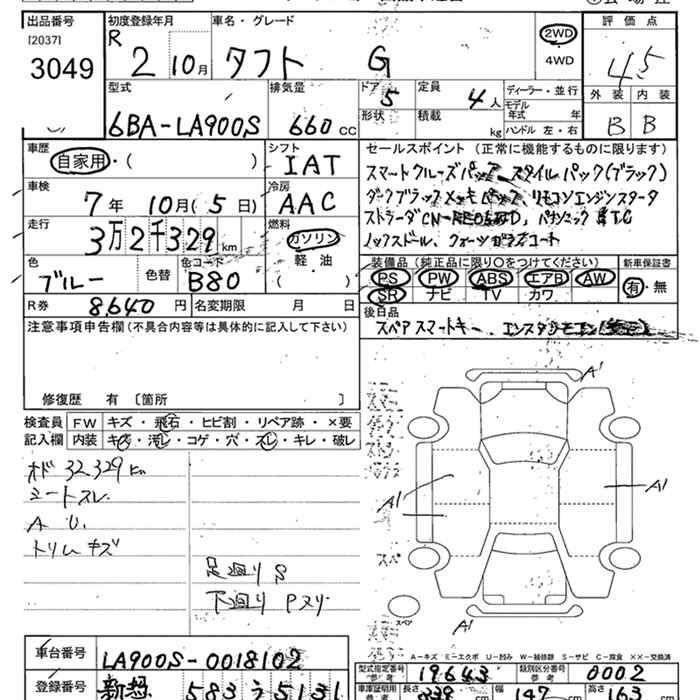 出品番号 初度登録年月 車名・グレード 評価点
[2037] R 2WD
3049 2 10月 タフト G 4WD 4.5
型式 排気量 ドア 5 定員 4人 ディーラー・並行 外装 内装
形状 積載 kg モデル年式 年
6BA-LA900S 660CC ハンドル 左・右 B B
車歴 シフト セールスポイント (正常に機能するものに限ります)
自家用・( ) IAT スマートクルーズパック スタイルパック(ブラック)
車検 冷房 ダークブラックメッキパック、リモコンエンジンスタータ
7年 10月(5日) AAC ストラーダ
走行 燃料
3万2千329km ガソリン
軽油 装備品(純正品に限り○をつけてください) 新車保証書
色 色替 色コード ( ) PS PW ABS エアB AW 有・無
ブルー B80 SR ナビ TV カワ
R券 8,640円 名変期限 月 日 後日品
注意事項申告欄(不具合内容等は具体的に記入して下さい) スペアスマートキー、
修復歴 有 〔箇所 〕
検査員 FW キズ・飛石・ヒビ割・リペア跡・×要
記入欄 内装 キズ・汚レ・コゲ・穴・スレ・キレ・破レ
オド 32,329km
シートスレ
A U.
トリムキズ
足廻りS
下廻りPスリ
A1
A1
A1
スペ
スペア
A1
A-キズ E-エクボ U-凹み W-補修跡 S-サビ C-腐食 ××-交換済
車台番号 LA900S-0018102 型式指定番号 参考 19643 類別区分番号 参考 0002
登録番号 583 う 5131 車庫証明用 参考 長さ 339cm 幅 高さ 163cm